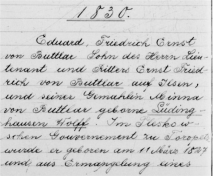 1830.
Eduard, Friedrich Ernst
von Buttlar Sohn des Herrn Lieu-
tenant und Ritters Ernst Fried-
rich von Buttlar auf Ilsen,
und seiner Gemahlin Minna
von Buttlar geborne Lüding-
hausen Wolff. Im
schen Gouvernement zu
wurde er geboren am 11 März 1827
und aus Ermangelung eines